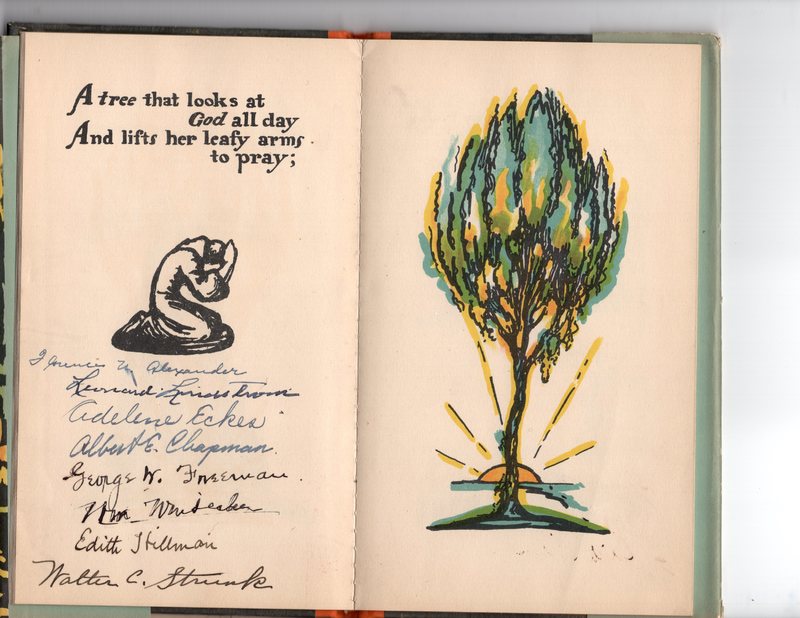 A tree that looks at
God all day
And lifts her leafy arms
to pray;
Alexander
Leonard Lindstrom
Adelene Eckes
Albert E. Chapman.
George W. Freeman.
Wm
Edith Hillman
Walter C. Strunk